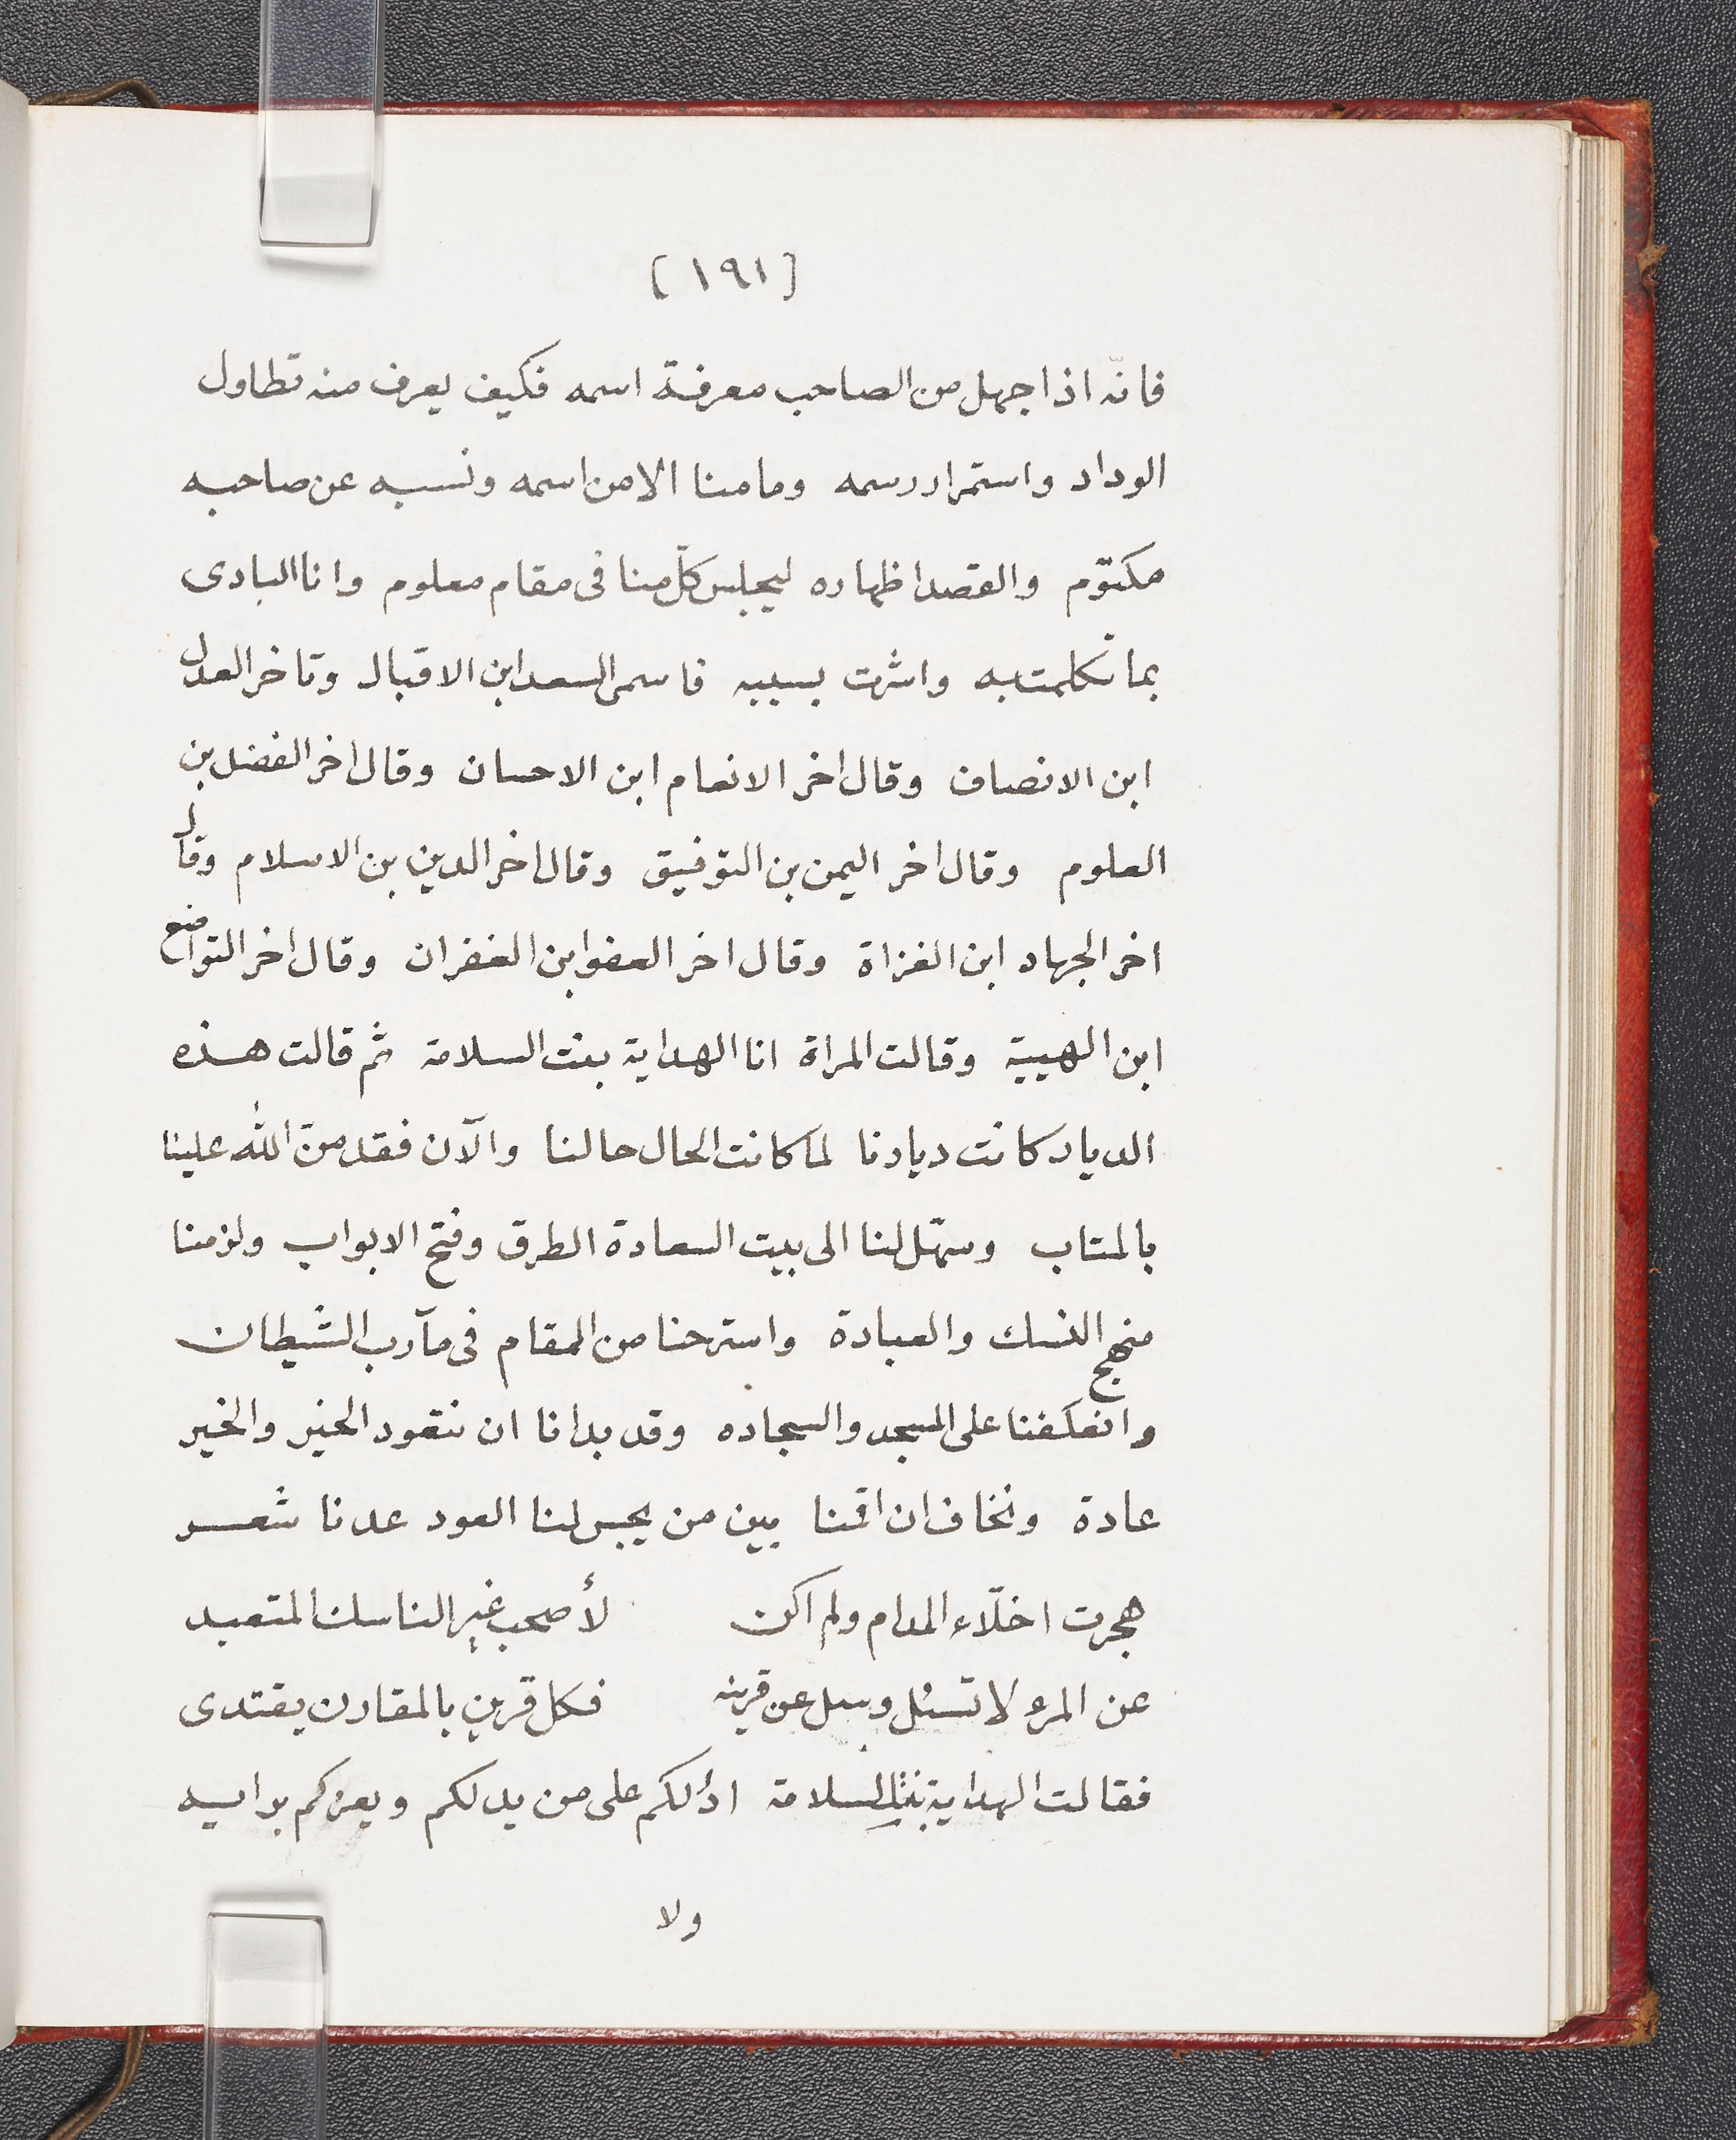 [١٩١]
فانّه اذا جهل من الصاحب معرفة اسمه فكيف يعرف منه تطاول
الوداد واستمرار رسمه وما منا الا من اسمه ونسبه عن صاحبه
مكتوم والقصد اظهاره ليجلس كلّ منا فى مقام معلوم وانا البادى
بما تكلمت به واشرت بسببه فاسمى السعد ابن الاقبال وتاخر العدل
ابن الانصاف وقال اخر الانعام ابن الاحسان وقال اخر الفضل بن
العلوم وقال اخر اليمن بن التوفيق وقال اخر الدين بن الاسلام وقال
اخر الجهاد ابن الغزاة وقال اخر العفو ابن الغفران وقال اخر التواضع
ابن الهيبة وقالت المراة انا الهداية بنت السلامة ثم قالت هذه
الديار كانت ديارنا لما كانت الحال حالنا والآن فقد منّ الله علينا
بالمتاب وسهّل لنا الى بيت السعادة الطرق وفتح الابواب ولزمنا
منهج النسك والعبادة واسترحنا من المقام فى مآرب الشيطان
وانعكفنا على المسجد والسجاده وقد بدانا ان نتعود الخير والخير
عادة ونخاف ان اقمنا بين من يحبس لنا العود عدنا شعر
هجرت اخلّاء المدام ولم اكن لأصحب غير الناسك المتعبد
عن المرء لا تسئل وسل عن قرينه فكل قرين بالمقارن يقتدى
فقالت الهداية بنت السلامة ادلكم على من يدلكم ويعزكم برايه
ولا